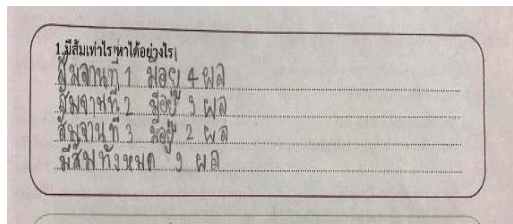 1.มีส้มเท่าไร หาได้อย่างไร
ส้มจานที่ 1 มีอยู่ 4 ผล
ส้มจานที่ 2 มีอยู่ 3 ผล
ส้มจานที่ 3 มีอยู่ 2 ผล
มีส้มทั้งหมด 9 ผล